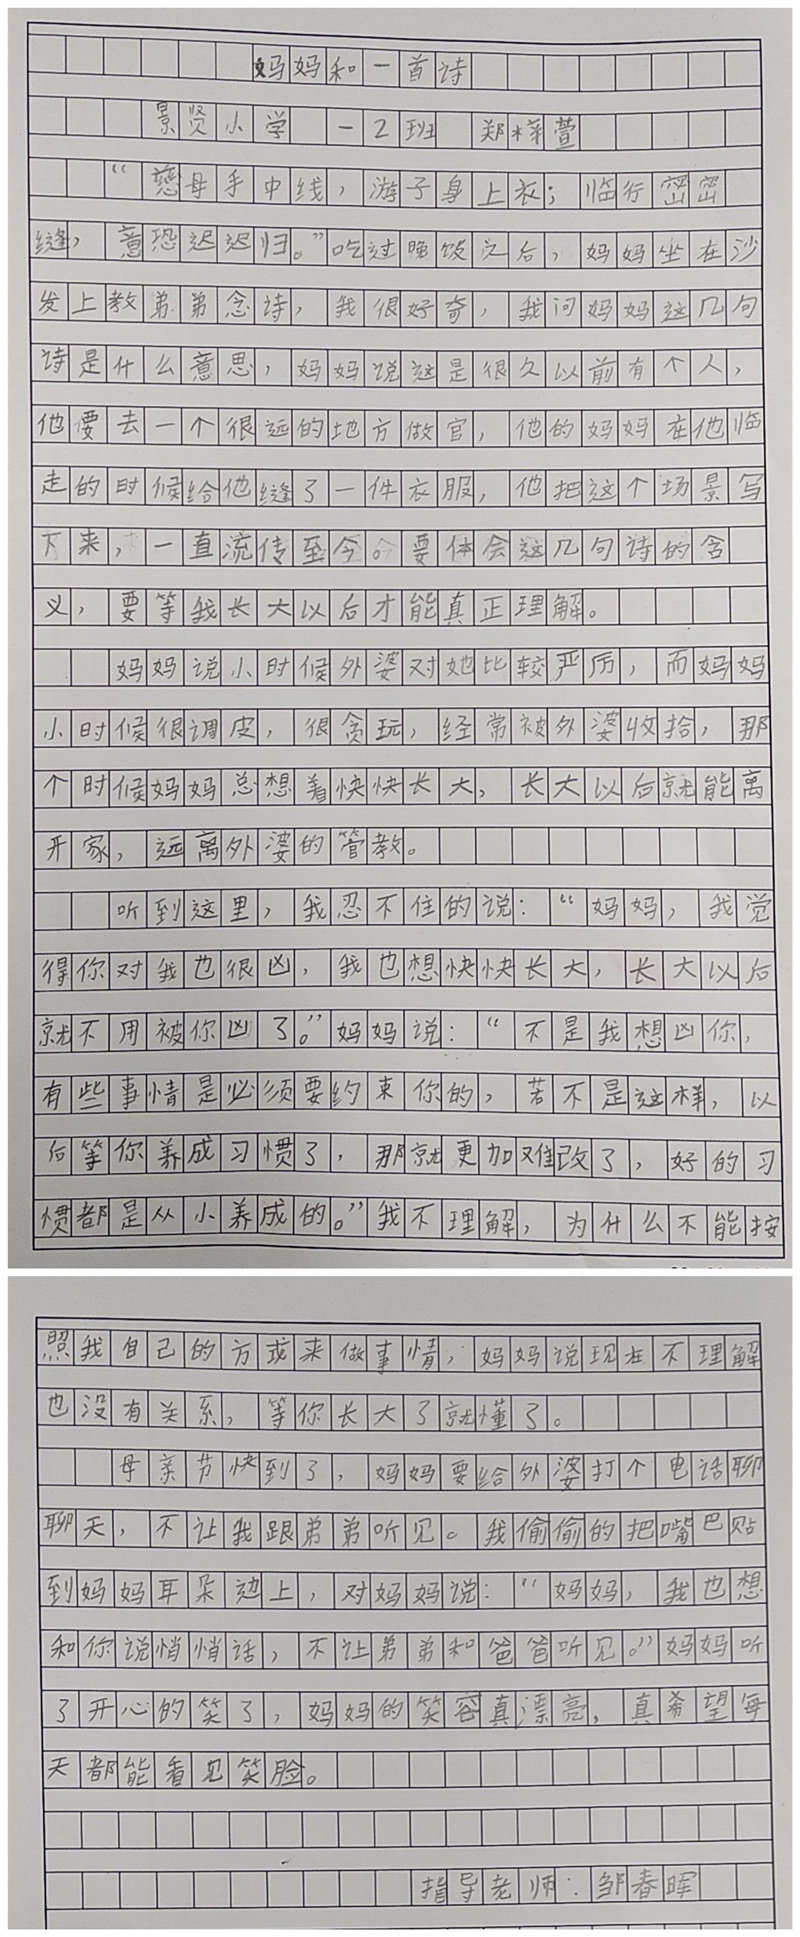 妈妈和一首诗
景贤小学 一2班 郑梓萱
“慈母手中线，游子身上衣；临行密密
缝，意恐迟迟归。”吃过晚饭之后，妈妈坐在沙
发上教弟弟念诗，我很好奇，我问妈妈这几句
诗是什么意思，妈妈说这是很久以前有个人，
他要去一个很远的地方做官，他的妈妈在他临
走的时候给他缝了一件衣服，他把这个场景写
下来，一直流传至今。要体会这几句诗的含
义，要等我长大以后才能真正理解。
妈妈说小时候外婆对她比较严厉，而妈妈
小时候很调皮，很贪玩，经常被外婆收拾，那
个时候妈妈总想着快快长大，长大以后就能离
开家，远离外婆的管教。
听到这里，我忍不住的说：“妈妈，我觉
得你对我也很凶，我也想快快长大，长大以后
就不用被你凶了。”妈妈说：“不是我想凶你，
有些事情是必须要约束你的，若不是这样，以
后等你养成习惯了，那就更加难改了，好的习
惯都是从小养成的。”我不理解，为什么不能按
照我自己的方式来做事情，妈妈说现在不理解
也没有关系，等你长大了就懂了。
母亲节快到了，妈妈要给外婆打个电话聊
聊天，不让我跟弟弟听见。我偷偷的把嘴巴贴
到妈妈耳朵边上，对妈妈说：“妈妈，我也想
和你说悄悄话，不让弟弟和爸爸听见。”妈妈听
了开心的笑了，妈妈的笑容真漂亮，真希望每
天都能看见笑脸。
指导老师：邹春晖